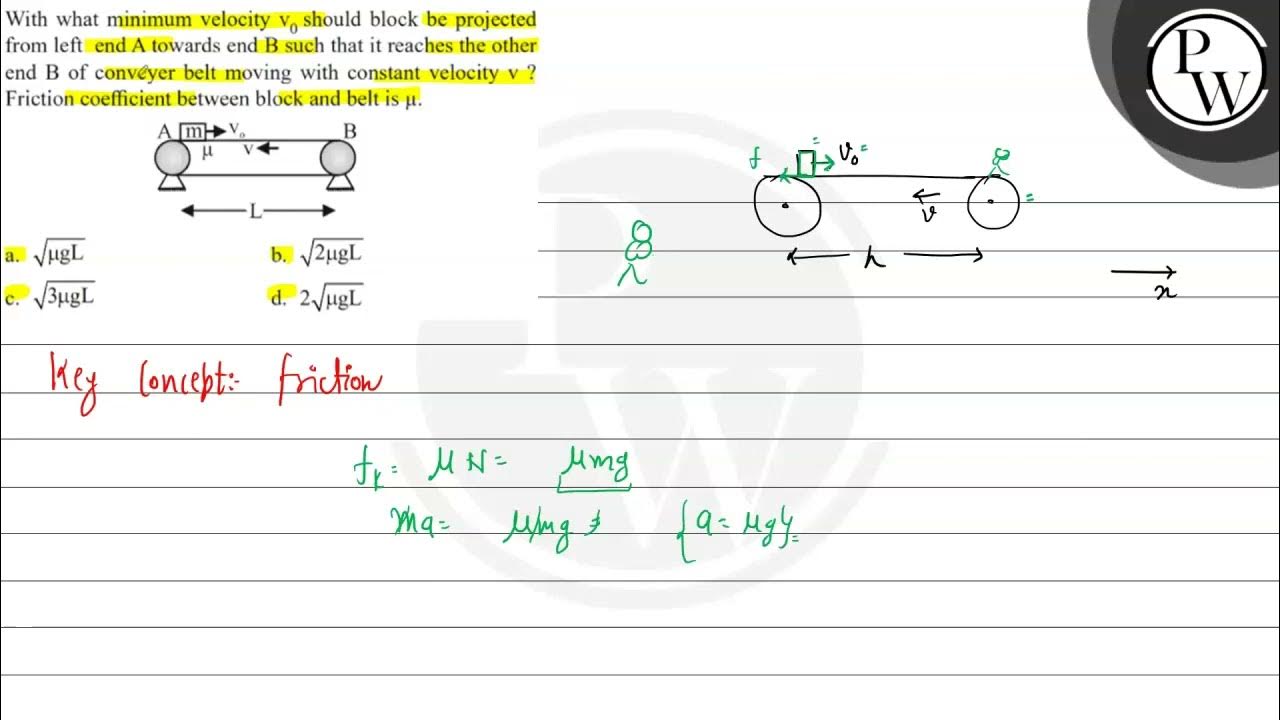 With what minimum velocity v₀ should block be projected
from left end A towards end B such that it reaches the other
end B of conveyer belt moving with constant velocity v ?
Friction coefficient between block and belt is μ.
A m V₀ B
μ v
L
a. √μgL b. √2μgL
c. √3μgL d. 2√μgL
P
W
f v₀ =
=
v
x
Key Concept:- friction
fₖ = μN = μmg
ma = μmg
{a = μg}